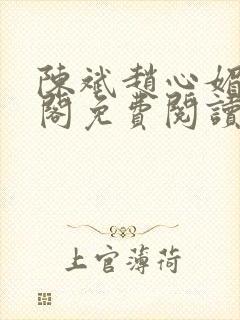 陳斌趙心媚
閣免費閱讀
上官薄荷